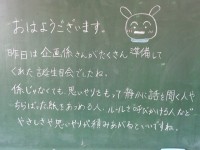 おはようございます。
昨日は企画係さんがたくさん準備して
くれたお誕生日会でしたね。
係じゃなくても思いやりをもって静かに話を聞く人や
ちらばった紙をあつめる人、ルールを呼びかける人など
やさしさや思いやりが積みあがるといいですね。